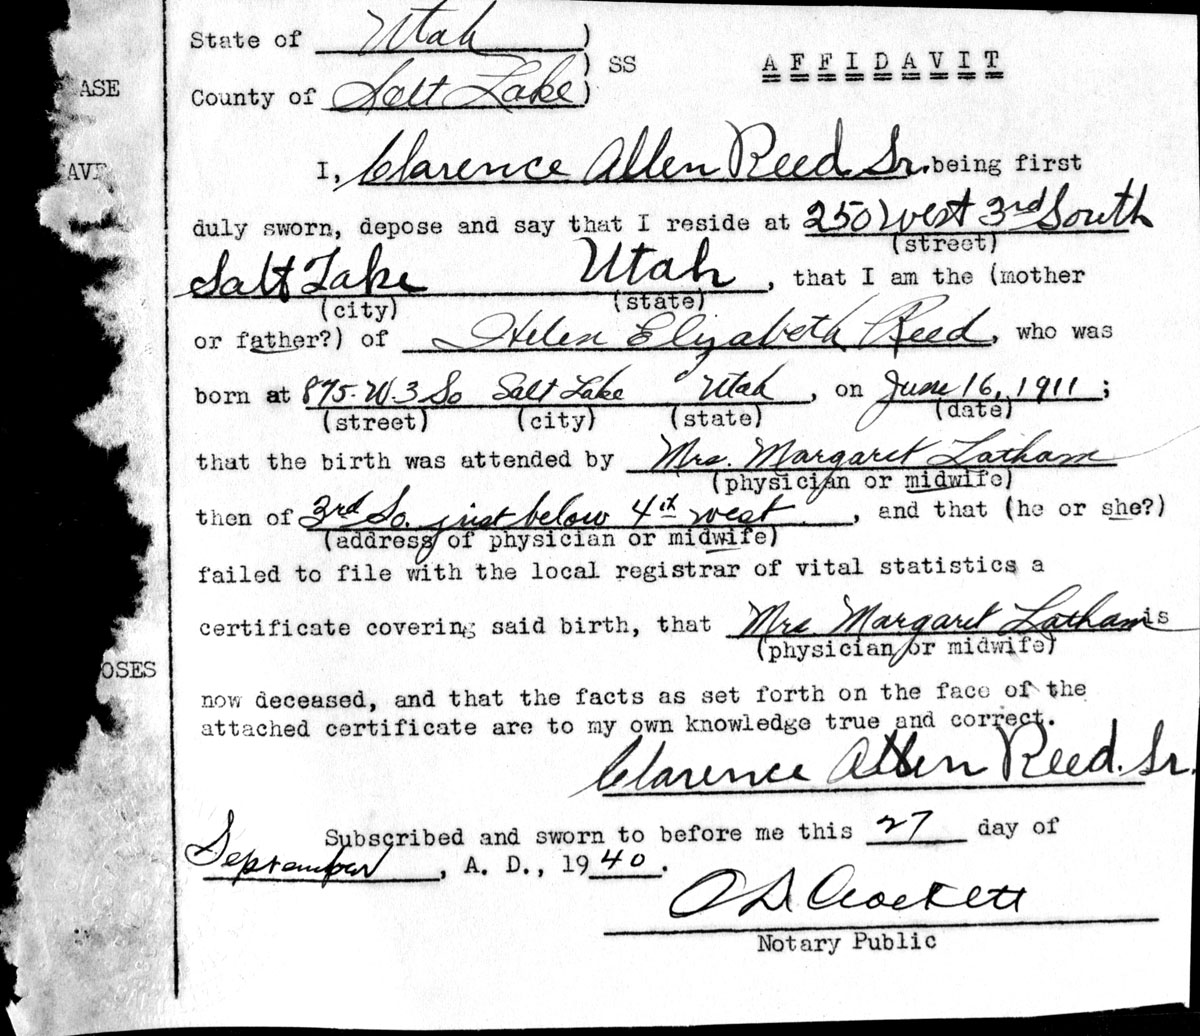 State of Utah )
) SS AFFIDAVIT
County of Salt Lake )
ASE
AVE
I, Clarence Allen Reed. Sr. being first
duly sworn, depose and say that I reside at 250 West 3rd South
(street)
Salt Lake Utah, that I am the (mother
(city) (state)
or father?) of Helen Elizabeth Reed, who was
born at 875-W-3 So Salt Lake Utah, on June 16, 1911;
(street) (city) (state) (date)
that the birth was attended by Mrs. Margaret Latham
(physician or midwife)
then of 3rd So. just below 4th west, and that (he or she?)
(address of physician or midwife)
failed to file with the local registrar of vital statistics a
certificate covering said birth, that Mrs. Margaret Latham is
(physician or midwife)
OSES
now deceased, and that the facts as set forth on the face of the
attached certificate are to my own knowledge true and correct.
Clarence Allen Reed. Sr.
Subscribed and sworn to before me this 27 day of
September, A. D., 1940.
Crockett
Notary Public